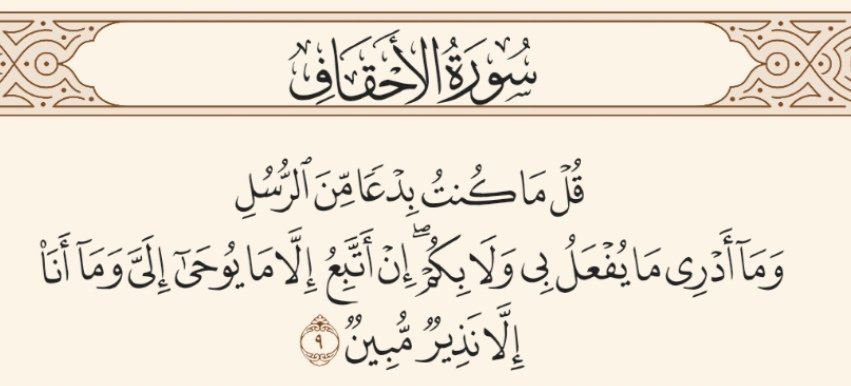 سُورَةُ الأَحْقَافِ
قُلْ مَا كُنتُ بِدْعًا مِّنَ ٱلرُّسُلِ
وَمَآ أَدْرِى مَا يُفْعَلُ بِى وَلَا بِكُمْ ۖ إِنْ أَتَّبِعُ إِلَّا مَا يُوحَىٰٓ إِلَىَّ وَمَآ أَنَا۠
إِلَّا نَذِيرٌ مُّبِينٌ ٩